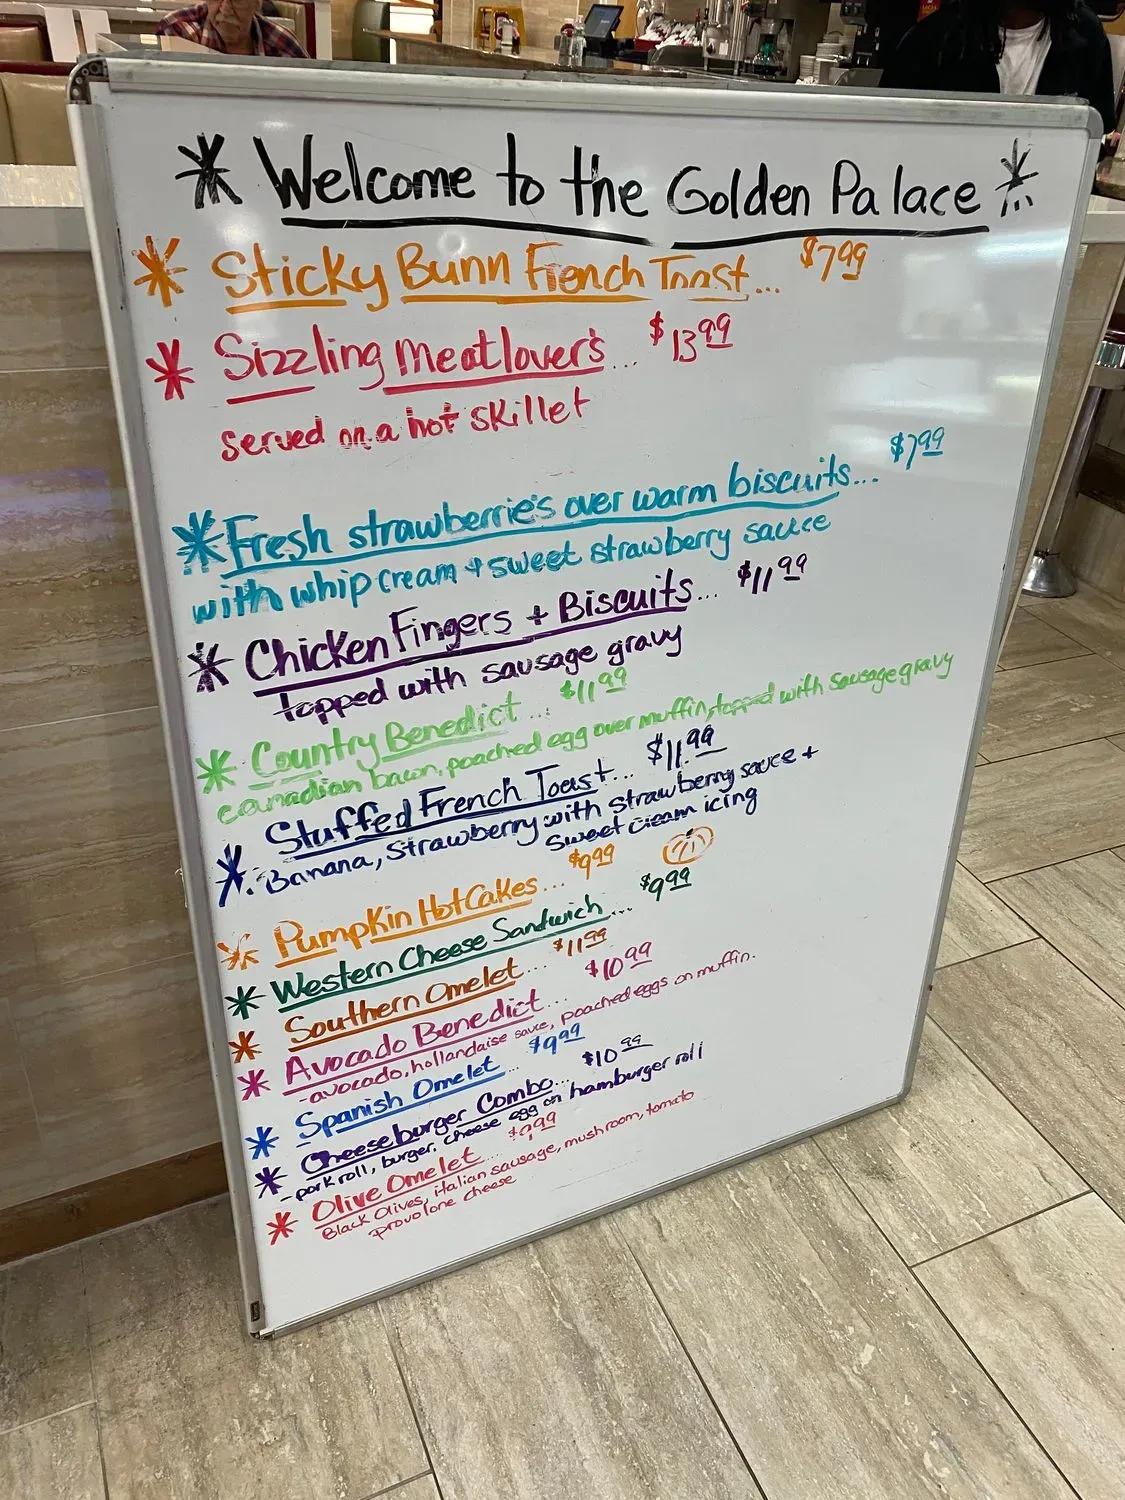 * Welcome to the Golden Palace *
* Sticky Bunn French Toast... $7.99
* Sizzling Meatlover's... $13.99
served on a hot skillet
* Fresh strawberrie's over warm biscuits... $7.99
with whip cream + sweet strawberry sauce
* Chicken Fingers + Biscuits... $11.99
topped with sausage gravy
* Country Benedict... $11.99
canadian bacon, poached egg over muffin, topped with sausage gravy
* Stuffed French Toast... $11.99
Banana, Strawberry with strawberry sauce +
sweet cream icing
* Pumpkin HotCakes... $9.99
* Western Cheese Sandwich... $9.99
* Southern Omelet... $11.99
* Avocado Benedict... $10.99
-avocado, hollandaise sauce, poached eggs on muffin.
* Spanish Omelet... $9.99
* Cheeseburger Combo... $10.99
-pork roll, burger, cheese egg on hamburger roll
* Olive Omelet...
Black Olives, italian sausage, mushroom, tomato
provolone cheese